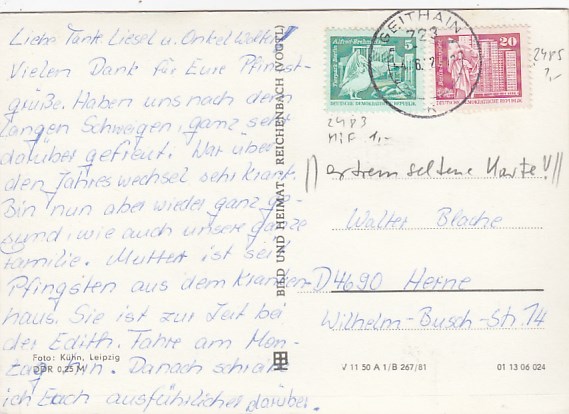 Liebe Tante Liesel u. Onkel Walter!
Vielen Dank für Eure Pfingst-
grüße. Haben uns nach dem
langen Schweigen, ganz sehr
darüber gefreut. War über
den Jahreswechsel sehr krank.
Bin nun aber wieder ganz ge-
sund, wie auch unsere ganze
Familie. Mutter ist seit
Pfingsten aus dem Kranken-
haus. Sie ist zur Zeit bei
der Edith. Fahre am Mon-
tag hin. Danach schreibe
ich Euch ausführlicher darüber.
Foto: Kühn, Leipzig
DDR 0,25 M
BILD UND HEIMAT REICHENBACH (VOGTL)
GEITHAIN
723
5
DEUTSCHE DEMOKRATISCHE REPUBLIK
20
DEUTSCHE DEMOKRATISCHE REPUBLIK
2485
1,-
2483
MiF 1,-
||extrem seltene Karte!||
Walter Blache
D 4690 Herne
Wilhelm-Busch-Str. 14
V 11 50 A 1/B 267/81
01 13 06 024